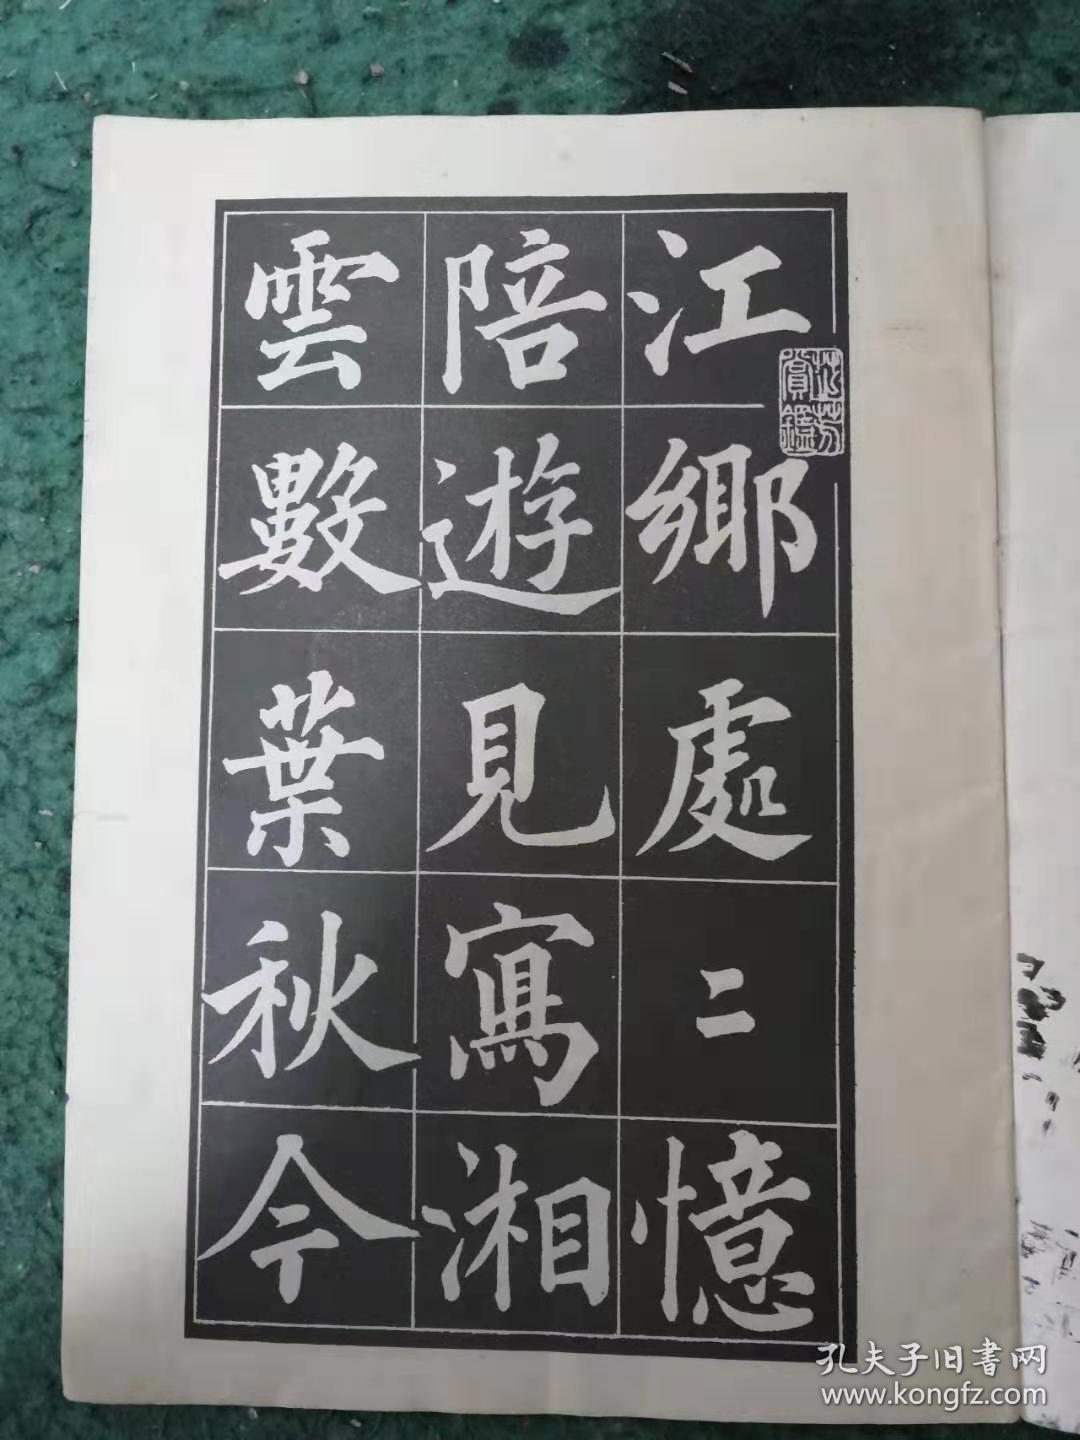 江鄉處二憶
陪遊見寫湘
雲數葉秋今
孔夫子旧書网
www.kongfz.com